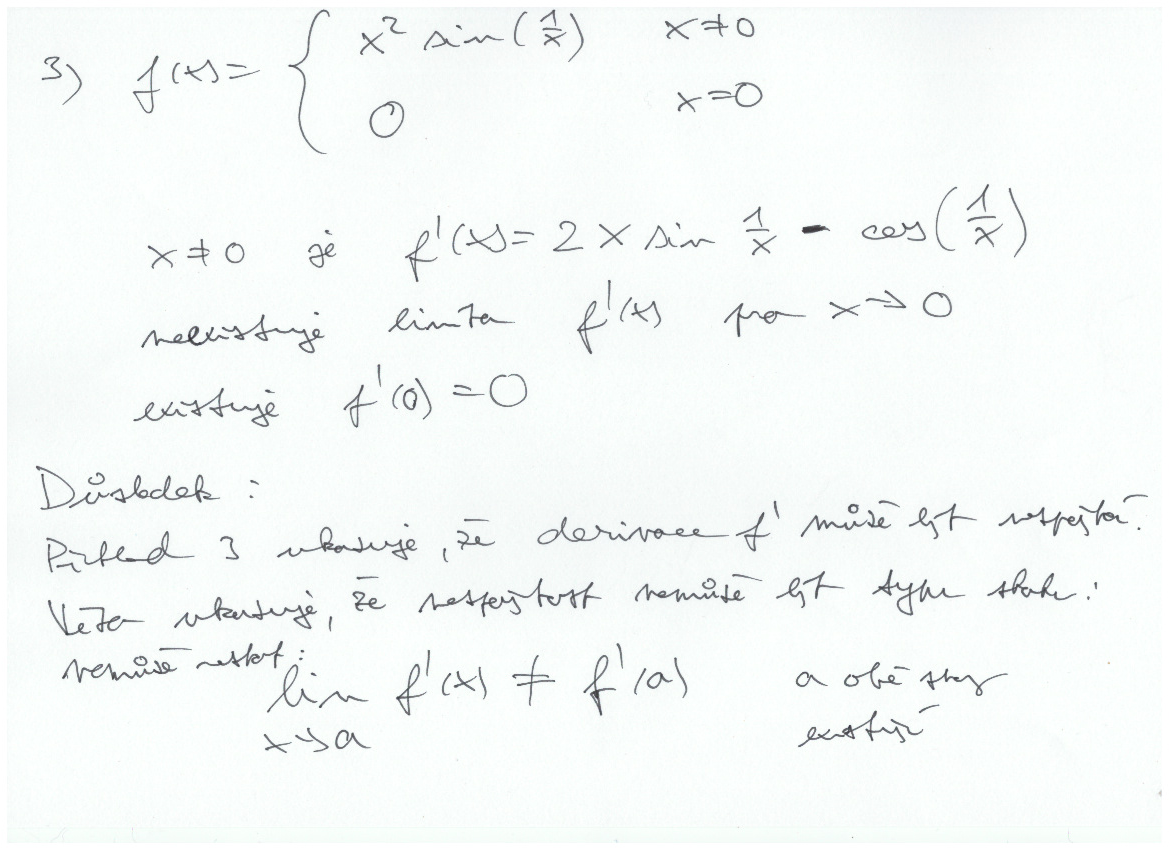 3) f(x) = { x² sin(1/x) x≠0
0 x=0
x≠0 je f'(x) = 2x sin 1/x - cos(1/x)
neexistuje limita f'(x) pro x→0
existuje f'(0) = 0
Důsledek :
Příklad 3 ukazuje, že derivace f' může být nespojitá.
Věta ukazuje, že nespojitost nemůže být typu skoku :
nemůže nastat :
lim f'(x) ≠ f'(a) a obě strany
x→a existují